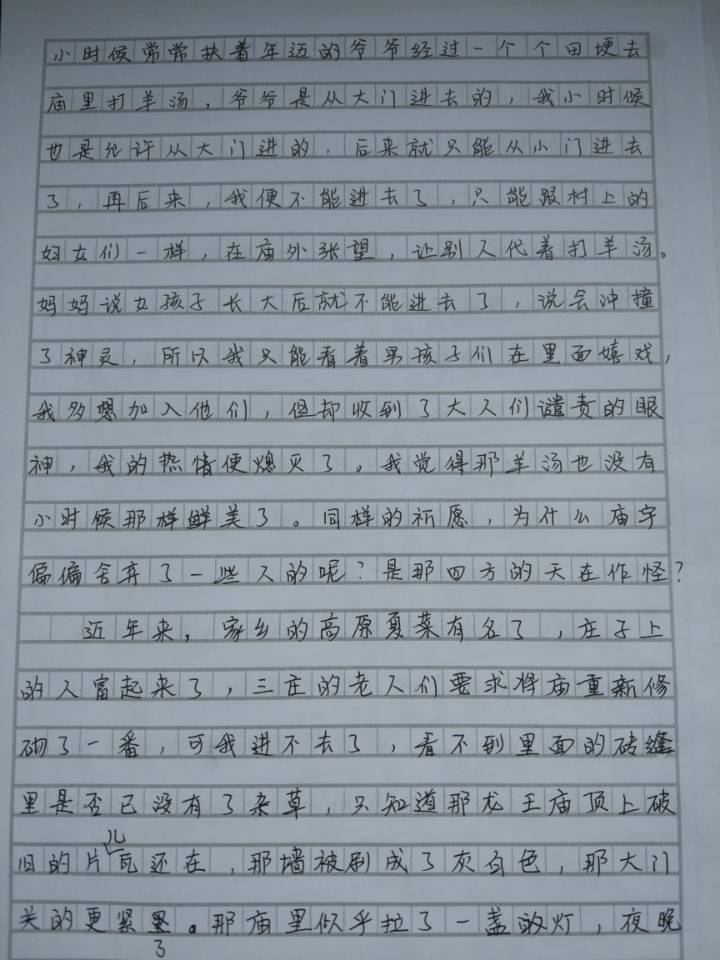 小时候常常扶着年迈的爷爷经过一个个田埂去
庙里打羊汤，爷爷是从大门进去的，我小时候
也是允许从大门进的，后来就只能从小门进去
了，再后来，我便不能进去了，只能跟村上的
妇女们一样，在庙外张望，让别人代着打羊汤。
妈妈说女孩子长大后就不能进去了，说会冲撞
了神灵，所以我只能看着男孩子们在里面嬉戏，
我多想加入他们，但却收到了大人们谴责的眼
神，我的热情便熄灭了。我觉得那羊汤也没有
小时候那样鲜美了。同样的祈愿，为什么庙宇
偏偏舍弃了一些人的呢？是那四方的天在作怪？
近年来，家乡的高原夏菜有名了，庄子上
的人富起来了，三庄的老人们要求将庙重新修
砌了一番，可我进不去了，看不到里面的砖缝
里是否已没有了杂草，只知道那龙王庙顶上破
旧的片儿瓦还在，那墙被刷成了灰白色，那大门
关的更紧了。那庙里似乎拉了一盏的灯，夜晚